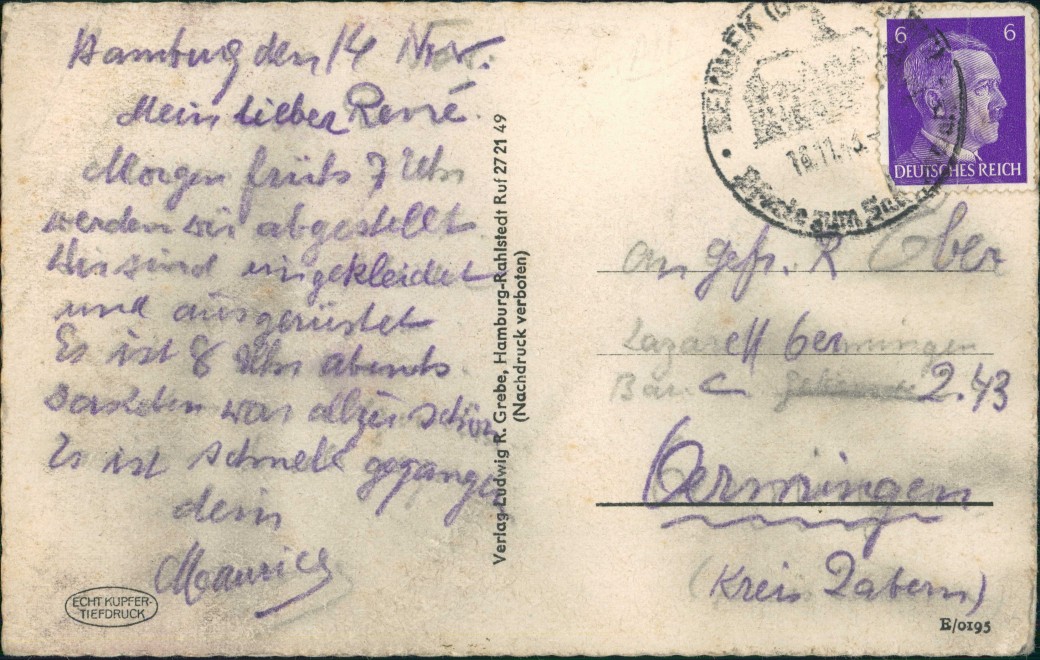 Hamburg den 14 Nov.
Mein lieber René.
Morgen früh 7 Uhr
werden wir abgestellt
Wir sind eingekleidet
und ausgerüstet
Es ist 8 Uhr abends
war schön
Es ist schnell gegangen
dein
Maurice
ECHT KUPFER-
TIEFDRUCK
Verlag Ludwig R. Grebe, Hamburg-Rahlstedt Ruf 27 21 49
(Nachdruck verboten)
REINBEK
6 6
DEUTSCHES REICH
An Gefr. R Ober
Lazarett Oermingen
Bar. C 2.43
Oermingen
(Kreis Zabern)
E/0195